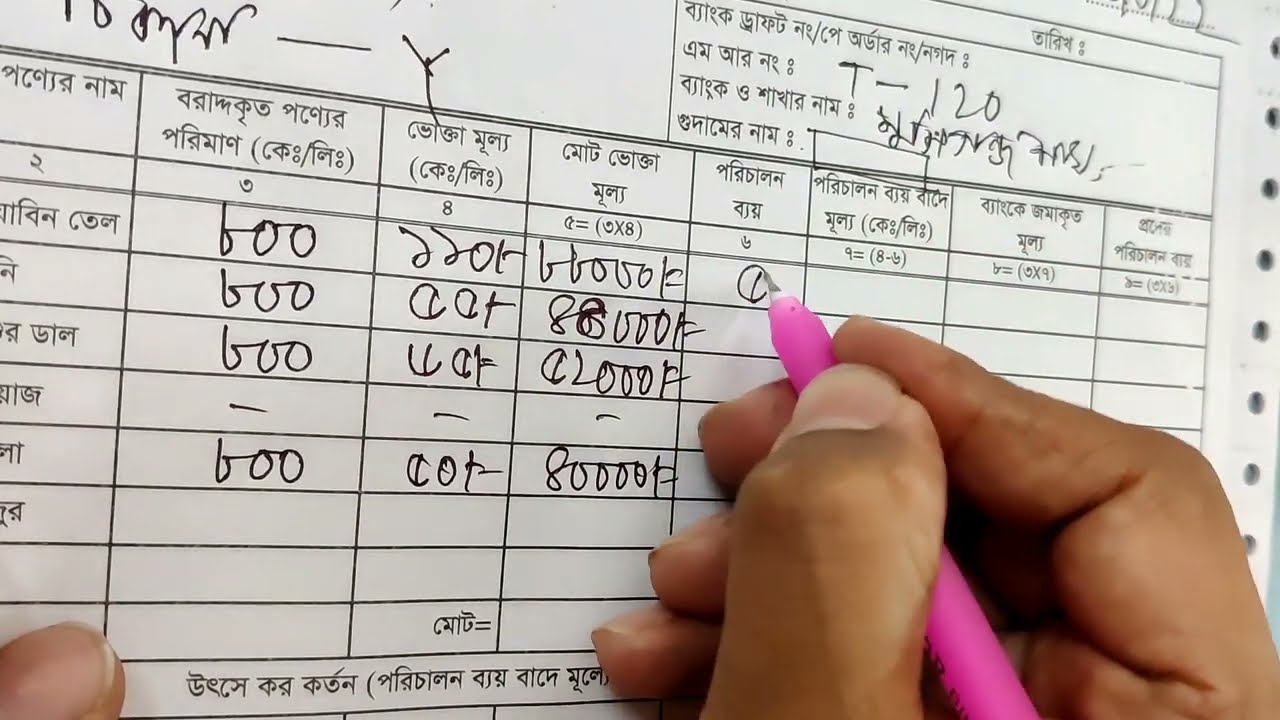 ঠিকানা — Y
ব্যাংক ড্রাফট নং/পে অর্ডার নং/নগদ : তারিখ :
এম আর নং : T-120
ব্যাংক ও শাখার নাম : মুন্সিগঞ্জ শাখা,
গুদামের নাম :
পণ্যের নাম বরাদ্দকৃত পণ্যের পরিমাণ (কেঃ/লিঃ) ভোক্তা মূল্য (কেঃ/লিঃ) মোট ভোক্তা মূল্য পরিচালন ব্যয় পরিচালন ব্যয় বাদে মূল্য (কেঃ/লিঃ) ব্যাংকে জমাকৃত মূল্য পরিচালন ব্যয়
২ ৩ ৪ ৫= (৩X৪) ৬ ৭= (৪-৬) ৮= (৩X৭) ৯= (৩X৬)
য়াবিন তেল ৮০০ ১১০/- ৮৮০০০/= ৫
নি ৮০০ ৫৫/- ৪৪০০০/=
র ডাল ৮০০ ৬৫/= ৫২০০০/=
য়াজ – – –
লা ৮০০ ৫০/- ৪০০০০/=
জুর
মোট=
উৎসে কর কর্তন (পরিচালন ব্যয় বাদে মূল্যে